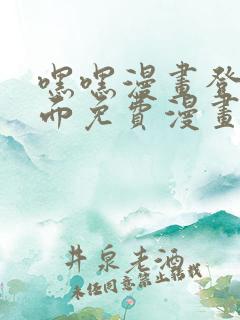 嘿嘿漫畫登
而免費漫畫
井泉老酒
未經同意禁止轉載